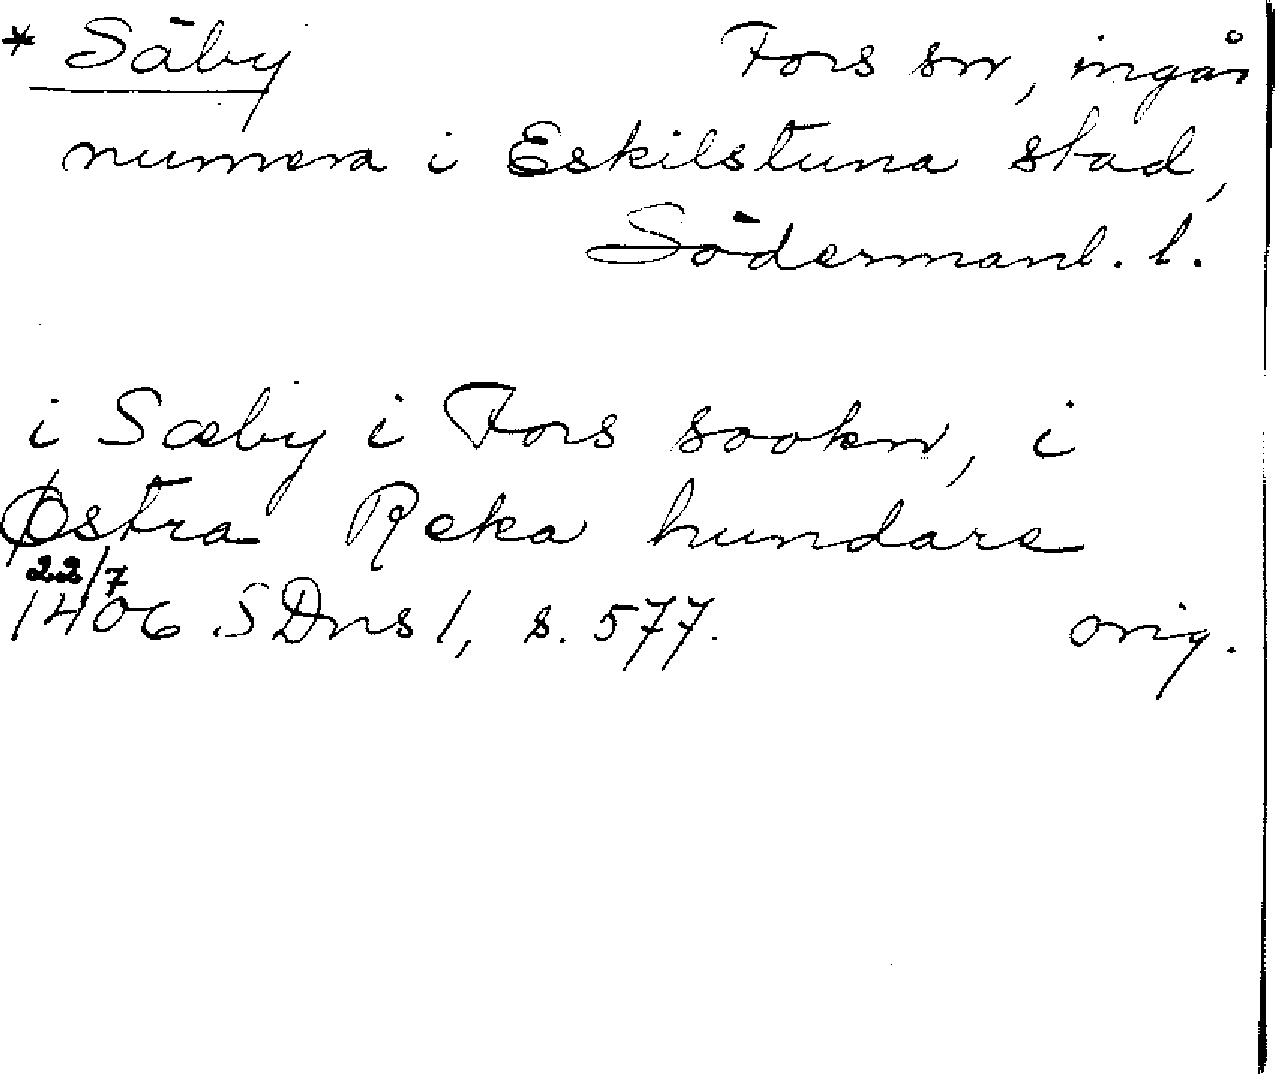 * Säby Fors sn, ingår
numera i Eskilstuna stad,
Södermanl. l.
i Sæby i Fors sookn, i
Østra Reka hundare
22/7
1406 SDns 1, s. 577. orig.